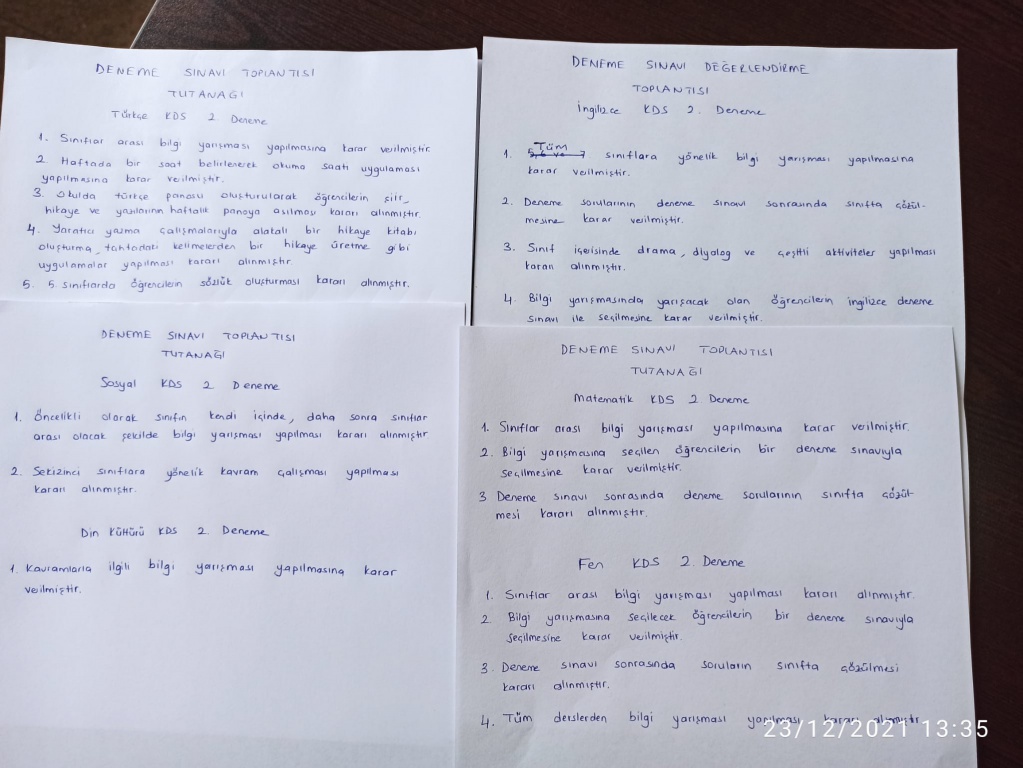 DENEME SINAVI TOPLANTISI
TUTANAĞI
Türkçe KDS 2. Deneme
1. Sınıflar arası bilgi yarışması yapılmasına karar verilmiştir.
2. Haftada bir saat belirlenerek okuma saati uygulaması
yapılmasına karar verilmiştir.
3. Okulda türkçe panosu oluşturularak öğrencilerin şiir,
hikaye ve yazılarının haftalık panoya asılması kararı alınmıştır.
4. Yaratıcı yazma çalışmalarıyla alakalı bir hikaye kitabı
oluşturma, tahtadaki kelimelerden bir hikaye üretme gibi
uygulamalar yapılması kararı alınmıştır.
5. 5. sınıflarda öğrencilerin sözlük oluşturması kararı alınmıştır.
DENEME SINAVI DEĞERLENDİRME
TOPLANTISI
İngilizce KDS 2. Deneme
1. Tüm sınıflara yönelik bilgi yarışması yapılmasına
karar verilmiştir.
2. Deneme sorularının deneme sınavı sonrasında sınıfta çözül-
mesine karar verilmiştir.
3. Sınıf içerisinde drama, diyalog ve çeşitli aktiviteler yapılması
kararı alınmıştır.
4. Bilgi yarışmasında yarışacak olan öğrencilerin ingilizce deneme
sınavı ile seçilmesine karar verilmiştir.
DENEME SINAVI TOPLANTISI
TUTANAĞI
Sosyal KDS 2. Deneme
1. Öncelikli olarak sınıfın kendi içinde, daha sonra sınıflar
arası olacak şekilde bilgi yarışması yapılması kararı alınmıştır
2. Sekizinci sınıflara yönelik kavram çalışması yapılması
kararı alınmıştır.
Din Kültürü KDS 2. Deneme
1. Kavramlarla ilgili bilgi yarışması yapılmasına karar
verilmiştir.
DENEME SINAVI TOPLANTISI
TUTANAĞI
Matematik KDS 2. Deneme
1. Sınıflar arası bilgi yarışması yapılmasına karar verilmiştir.
2. Bilgi yarışmasına seçilen öğrencilerin bir deneme sınavıyla
seçilmesine karar verilmiştir.
3 Deneme sınavı sonrasında deneme sorularının sınıfta çözül-
mesi kararı alınmıştır.
Fen KDS 2. Deneme
1. Sınıflar arası bilgi yarışması yapılması kararı alınmıştır.
2 Bilgi yarışmasına seçilecek öğrencilerin bir deneme sınavıyla
seçilmesine karar verilmiştir.
3. Deneme sınavı sonrasında soruların sınıfta çözülmesi
kararı alınmıştır.
4. Tüm derslerden bilgi yarışması yapılması kararı alınmıştır
23/12/2021 13:35